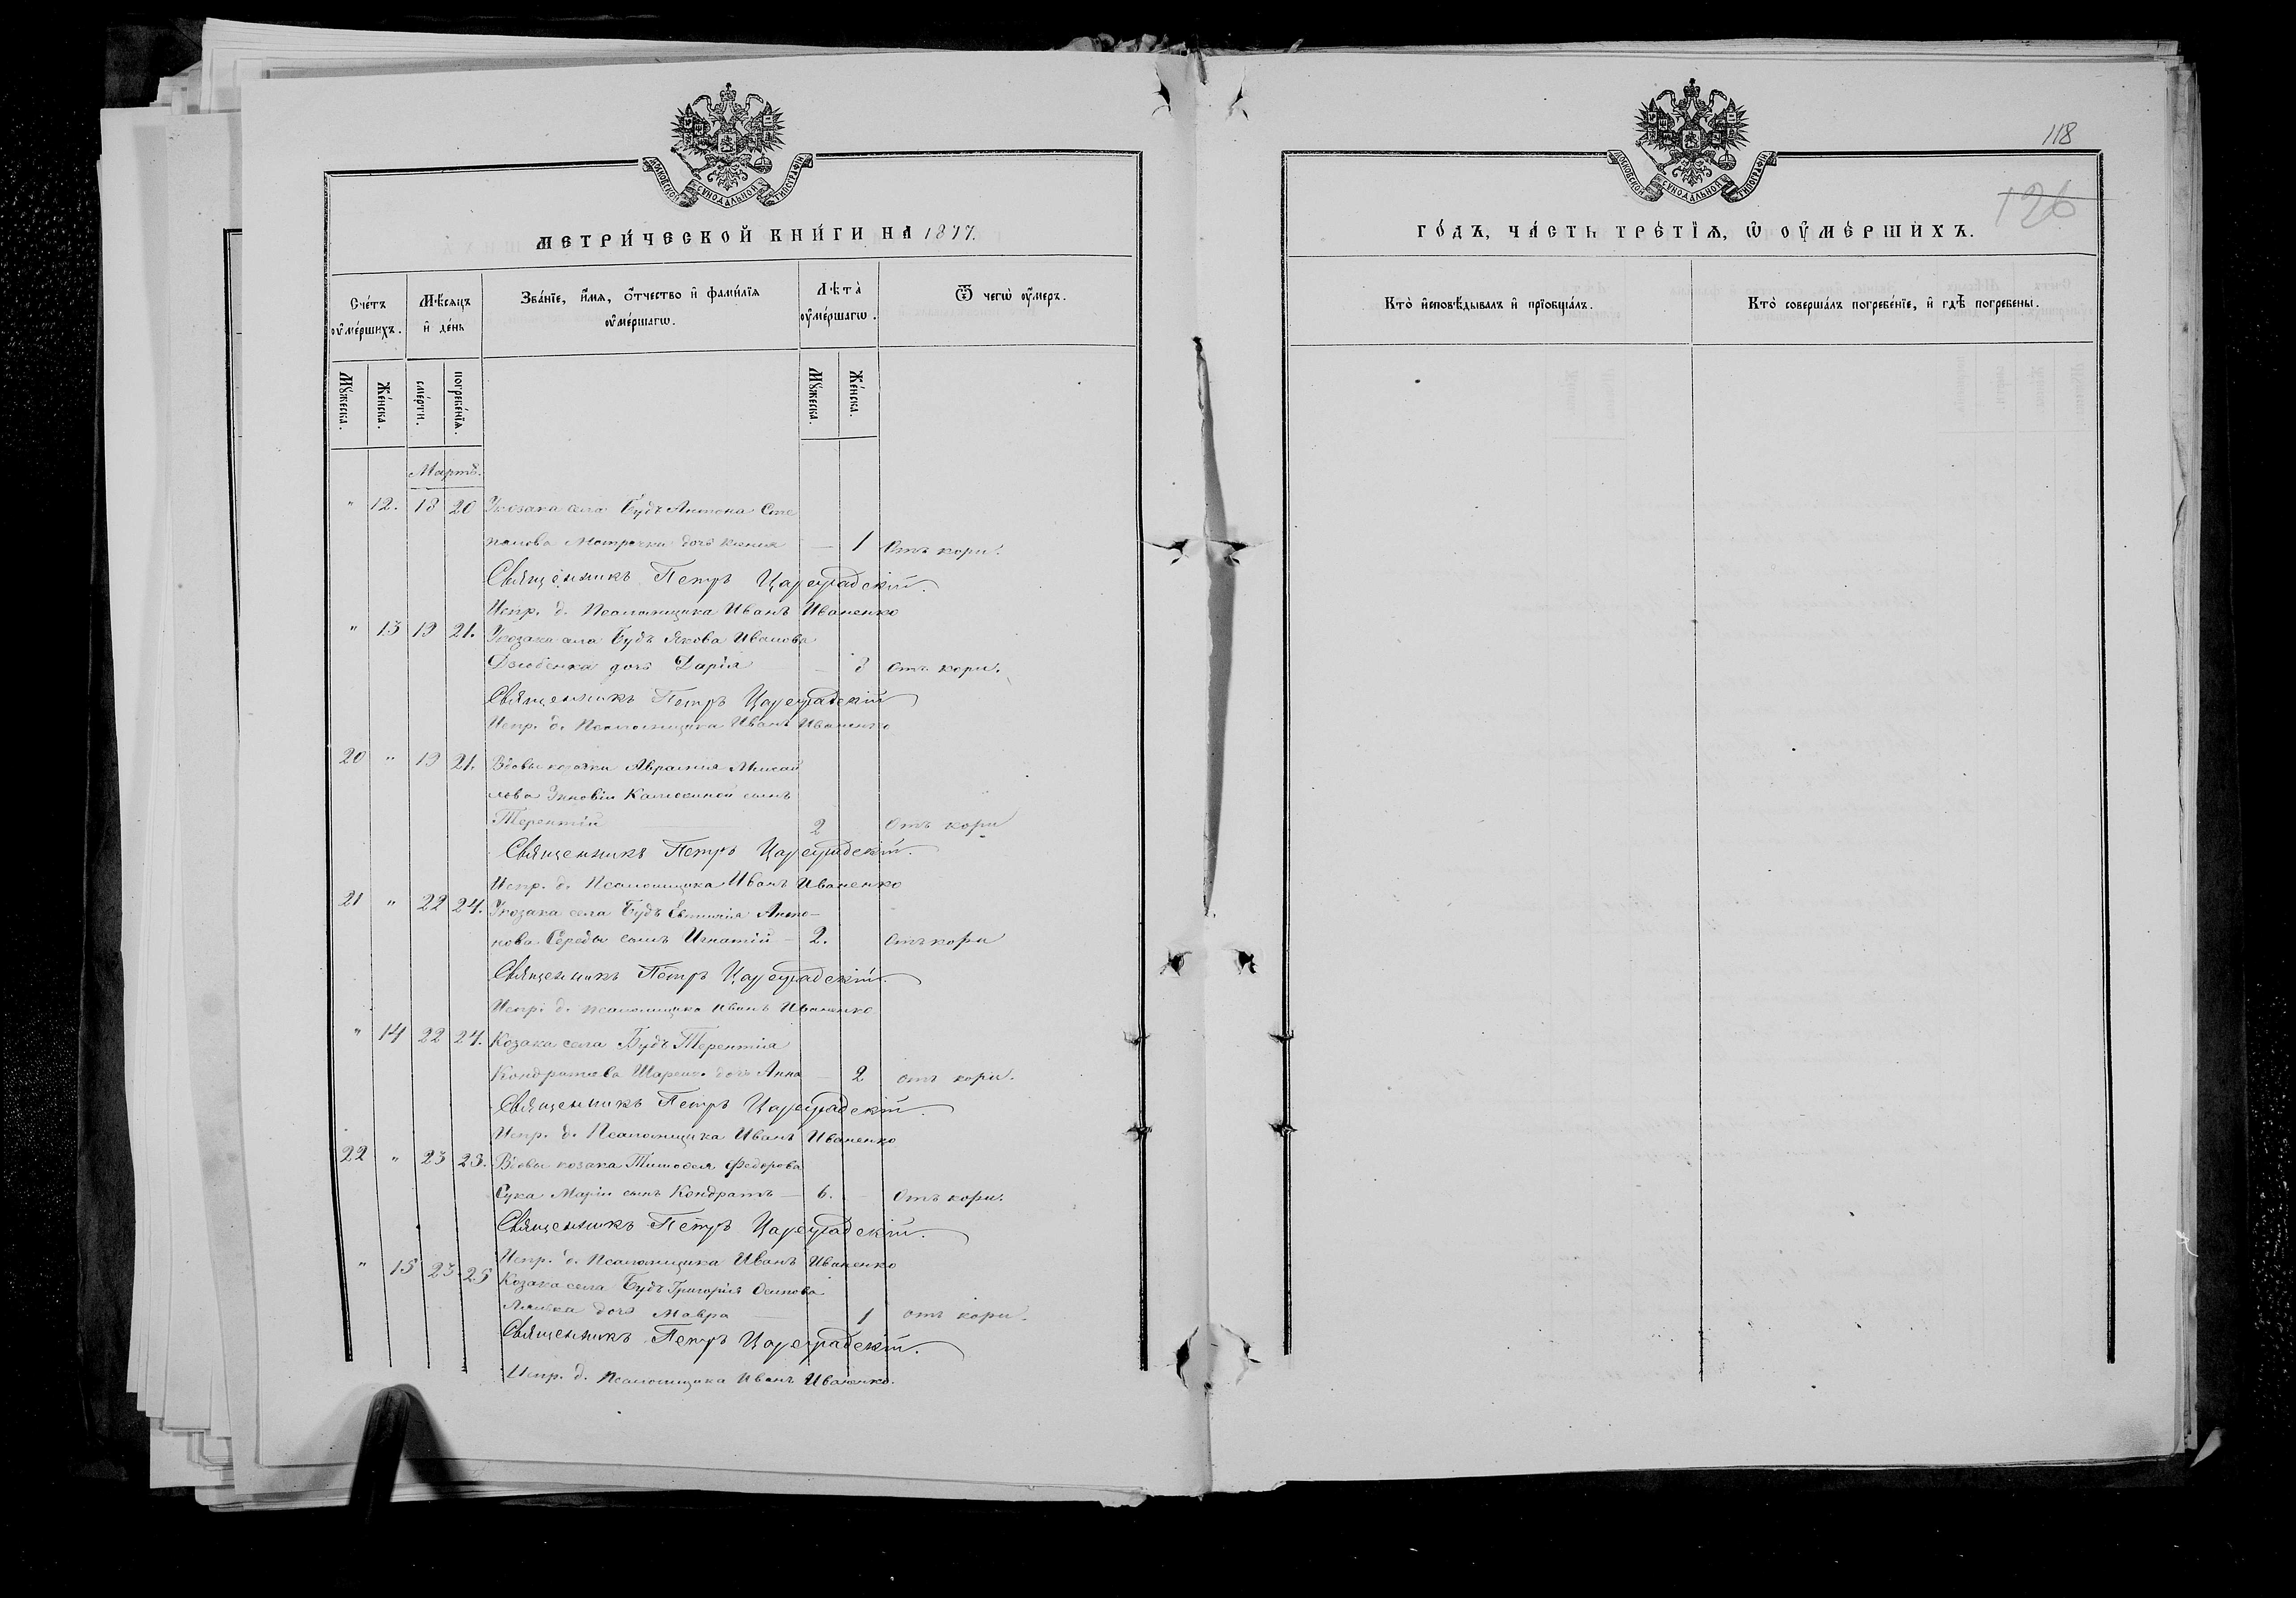 МОСКОВСКОЙ СѴНОДАЛЬНОЙ ТИПОГРАФІИ
МЕТРИ́ЧЕСКОЙ КНИ́ГИ НА 1877.
Сче́тъ оуме́ршихъ.
Мѣсяцъ и де́нь
Зва́нїе, и҆́мя, ѻ҆́тчество и҆ фами́лїя оуме́ршагѡ.
Лѣта̀ оуме́ршагѡ.
Ѿ чегѡ̀ оу҆́меръ.
Мꙋ́жеска.
Же́нска.
сме́рти.
погребе́нїя.
Мꙋ́жеска.
Же́нска.
Мартъ.
" 12. 18 20 Козака села Будъ Антона Сте
панова дочь — 1 Отъ кори.
Священникъ Петръ Цареградскій.
Испр. д. Псаломщика Иванъ Иваненко
" 13 19 21. Козака села Будъ Якова Иванова
дочь Дарія — 8 Отъ кори.
Священникъ Петръ Цареградскій
Испр. д. Псаломщика Иванъ Иваненко
20 " 19 21. Вдовы козачки
сынъ
Терентій 2 Отъ кори
Священникъ Петръ Цареградскій.
Испр. д. Псаломщика Иванъ Иваненко
21 " 22 24. Козака села Будъ Евтихія Анто-
нова Середы сынъ Игнатій — 2. Отъ кори
Священникъ Петръ Цареградскій.
Испр. д. псаломщика Иванъ Иваненко
" 14 22 24. Козака села Будъ Терентія
Кондратьева дочь Анна — 2 отъ кори.
Священникъ Петръ Цареградскій.
Испр. д. Псаломщика Иванъ Иваненко
22 " 23 25. Вдовы козака Тимофея Федорова
Сука Маріи сынъ Кондратъ — 6. Отъ кори.
Священникъ Петръ Цареградскій.
Испр. д. Псаломщика Иванъ Иваненко
" 15 23 25 Козака села Будъ Григорія Осипова
дочь Мавра 1 отъ кори.
Священникъ Петръ Цареградскій.
Испр. д. Псаломщика Иванъ Иваненко.
118
126
МОСКОВСКОЙ СѴНОДАЛЬНОЙ ТИПОГРАФІИ
ГО́ДЪ, ЧА́СТЬ ТРЕ́ТЇѦ, Ѡ ОУМЕ́РШИХЪ.
Кто̀ и҆сповѣ́дывалъ и҆ прїобща́лъ.
Кто̀ соверша́лъ погребе́нїе, и҆ гдѣ̀ погребены.